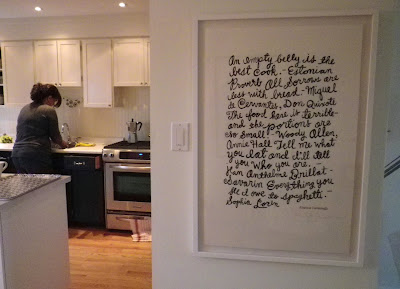 An empty belly is the
best cook. - Estonian
Proverb All Sorrows are
less with bread - Miguel
de Cervantes, Don Quixote
The food here is terrible
and the portions are
so small - Woody Allen,
Annie Hall Tell me what
you eat and I'll tell
you Who you are. -
Jean Anthelme Brillat -
Savarin Everything you
see I owe to spaghetti. -
Sophia Loren